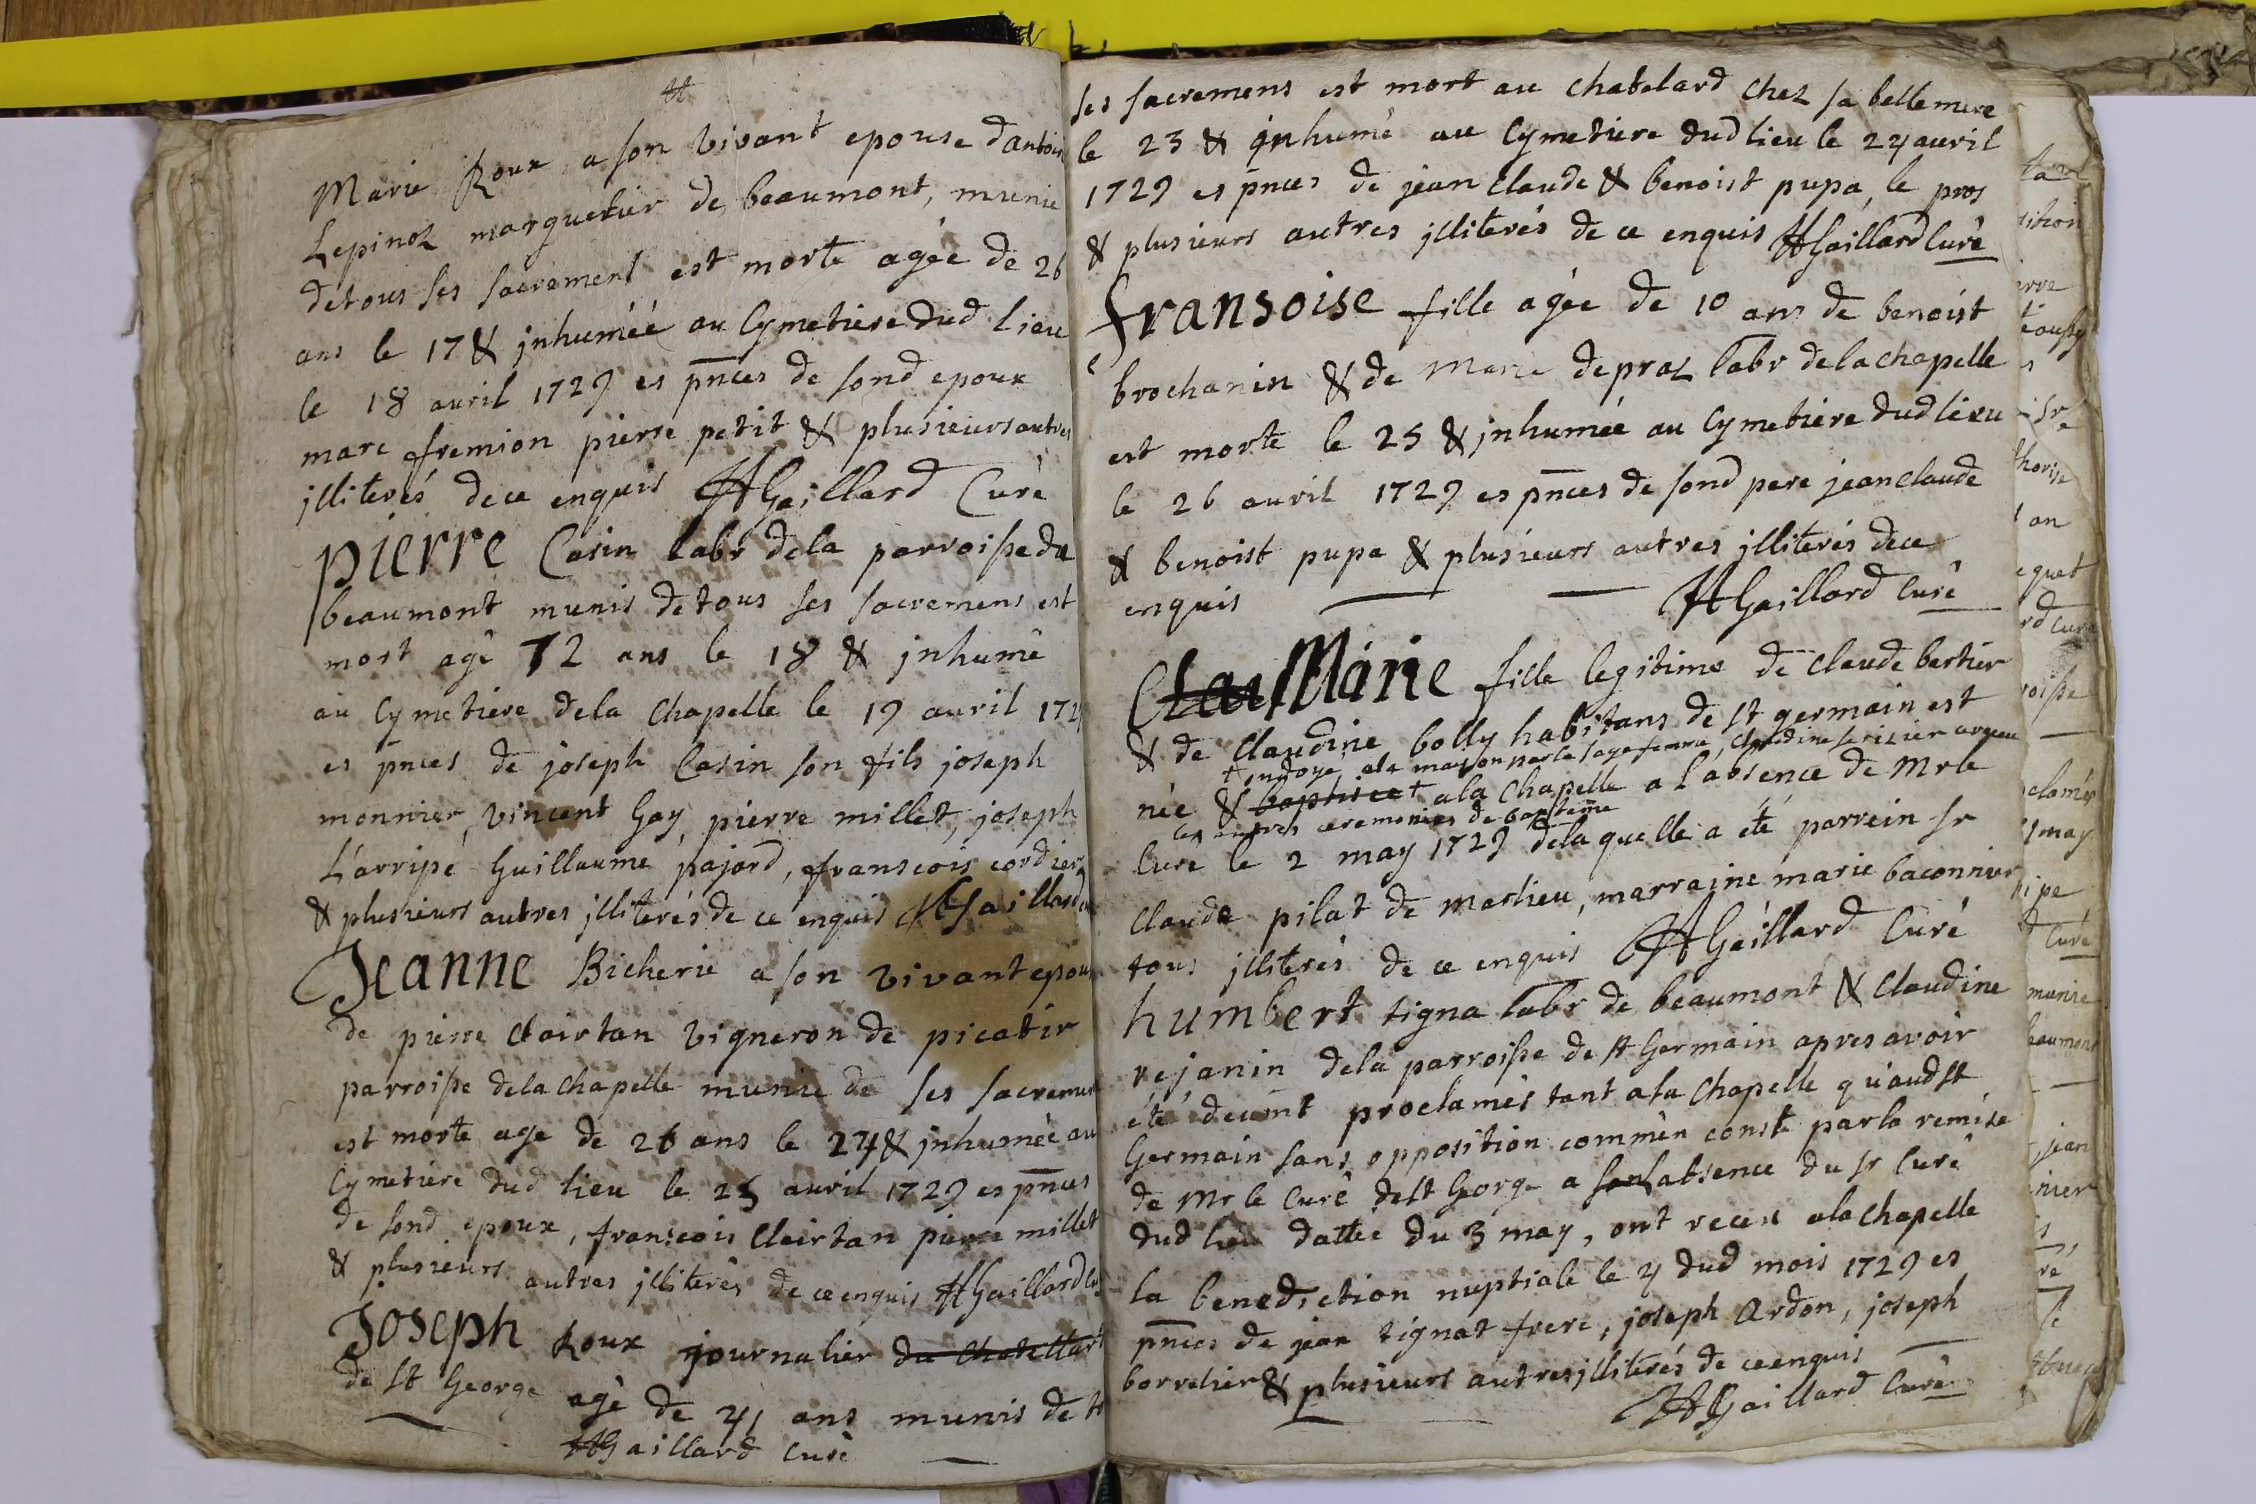 Marie Roux a son vivant epouse dantoin
Lepinoz marguelier de beaumont, munie
detous ses sacrement est morte agée de 26
ans le 17 & jnhuméé au Cymetiere dud lieu
le 18 avril 1729 es pnces de sond epoux
marc fremion pierre petit & plusieurs autres
jlliterés dece enquis AGaillard Curé
pierre Casin labr dela parroisse de
beaumont munis detous ses sacremens est
mort agé 72 ans le 18 & jnhumé
au Cymetiere dela Chapelle le 19 avril 1729
es pnces de joseph Casin son fils joseph
monnier, vincent Gay, pierre millet, joseph
L'arripé Guillaume pajard, franscois cordier
& plusieurs autres jlliterés de ce enquis AGaillard
Jeanne Bicherie a son vivant epou
de pierre Clairtan vigneron de picatir
parroisse dela chapelle munie de ses sacremen
est morte age de 26 ans le 24 & jnhumée au
Cymetiere dud lieu le 25 avril 1729 es pnces
de sond epoux, franscois Clairtan pierre millet
& plusieurs autres jlliterés de ce enquis AGaillard
Joseph Roux journalier du Chatellart
de st George agé de 41 ans munis de
AGaillard Curé
ses sacremens est mort au chatelard chez sa bellemere
le 23 & jnhumé au Cymetiere dud lieu le 24 avril
1729 es pnces de jean claude & benoist pupa, le pros
& plusieurs autres jlliterés de ce enquis AGaillard Curé
fransoise fille agée de 10 ans de benoist
brochanin & de Marie depraz labr dela chapelle
est morte le 25 & jnhuméé au Cymetiere dud lieu
le 26 avril 1729 es pnces de sond pere jean claude
& benoist pupa & plusieurs autres jlliterés dece
enquis AGaillard Curé
Clau Marie fille legitime de claude bertier
& de claudine bolly habitans de st germain est
+ ondoyé ala mayson par la sage femme, Claudine
née & baptiseé + ala chapelle a l'absence de Mr le
les ceremonies de baptême
Curé le 2 may 1729 dela quelle a été parrein Sr
claude pilat de marlieu, marraine marie baconnier
tous jlliterés de ce enquis AGaillard Curé
humbert tigna labr de beaumont & Claudine
rejanin dela parroisse de st Germain apres avoir
été deumt proclamés tant ala Chapelle qu'aud st
Germain sans opposition comm'en conste par la remise
de Mr le Curé de st George a son l'absence du sr Curé
dud lieu dattée du 3 may, ont receu ala chapelle
la benediction nuptiale le 4 dud mois 1729 es
pnces de jean tignat frere, joseph Ardon, joseph
borrelier & plusieurs autres jlliterés de ce enquis
AGaillard Curé